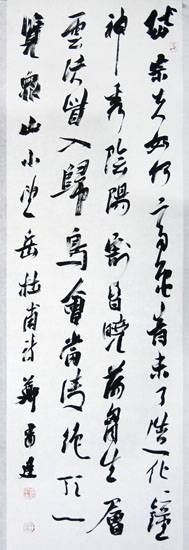 岱宗夫如何齊魯青未了造化鐘
神秀陰陽割昏曉蕩胸生層
雲決眥入歸鳥會當淩絕頂一
覽衆山小望岳杜甫詩鄭